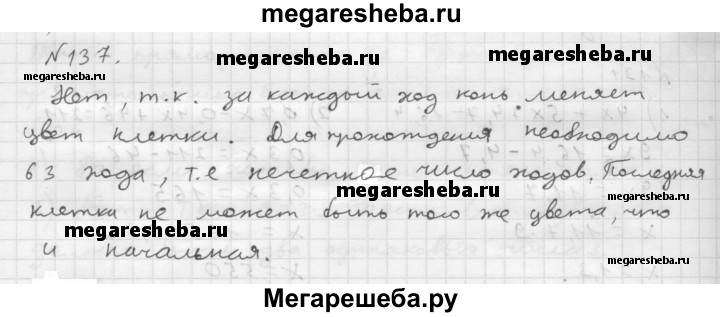 megaresheba.ru
№137.
megaresheba.ru
megaresheba.ru
megaresheba.ru
Нет, т.к. за каждый ход конь меняет
цвет клетки. Для прохождения необходимо
63 хода, т.е нечетное число ходов. Последняя
megaresheba.ru
megaresheba.ru
клетка не может быть того же цвета, что
и начальная.
megaresheba.ru
megaresheba.ru
Мегарешеба.ру